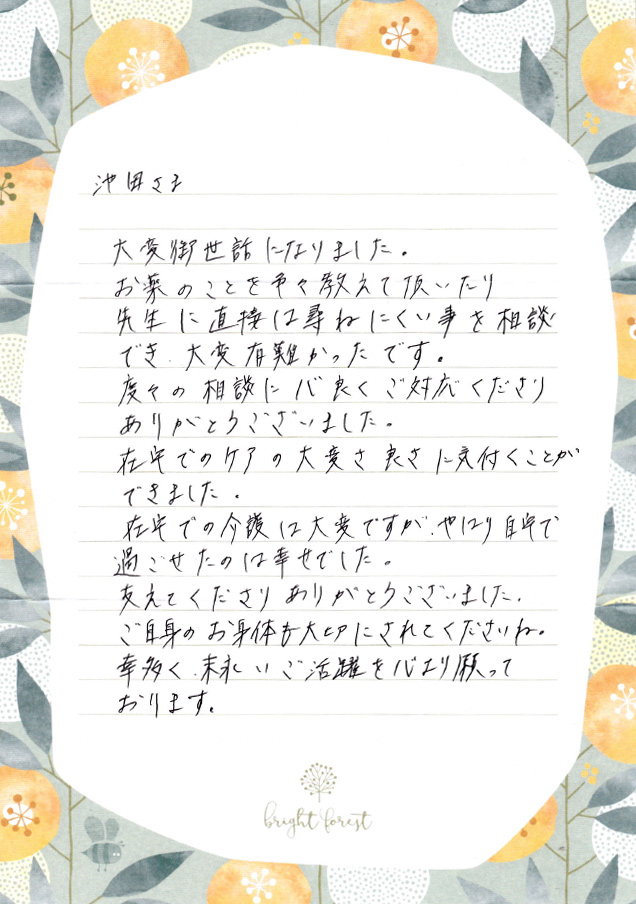 池田さま
大変御世話になりました。
お薬のことを色々教えて頂いたり
先生に直接は尋ねにくい事を相談
でき、大変有難かったです。
度々の相談に心良くご対応くださり
ありがとうございました。
在宅でのケアの大変さ良さに気付くことが
できました。
在宅での介護は大変ですが、やはり自宅で
過ごせたのは幸せでした。
支えてくださりありがとうございました。
ご自身のお身体も大切にされてくださいね。
幸多く、末永いご活躍を心より願って
おります。
bright forest